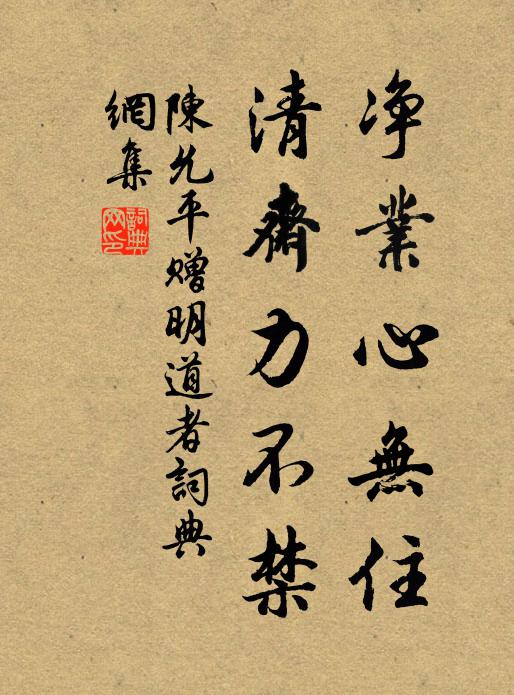 净業心無住
清齋力不禁
陳允平贈明道者詞典
網集
詞典網印